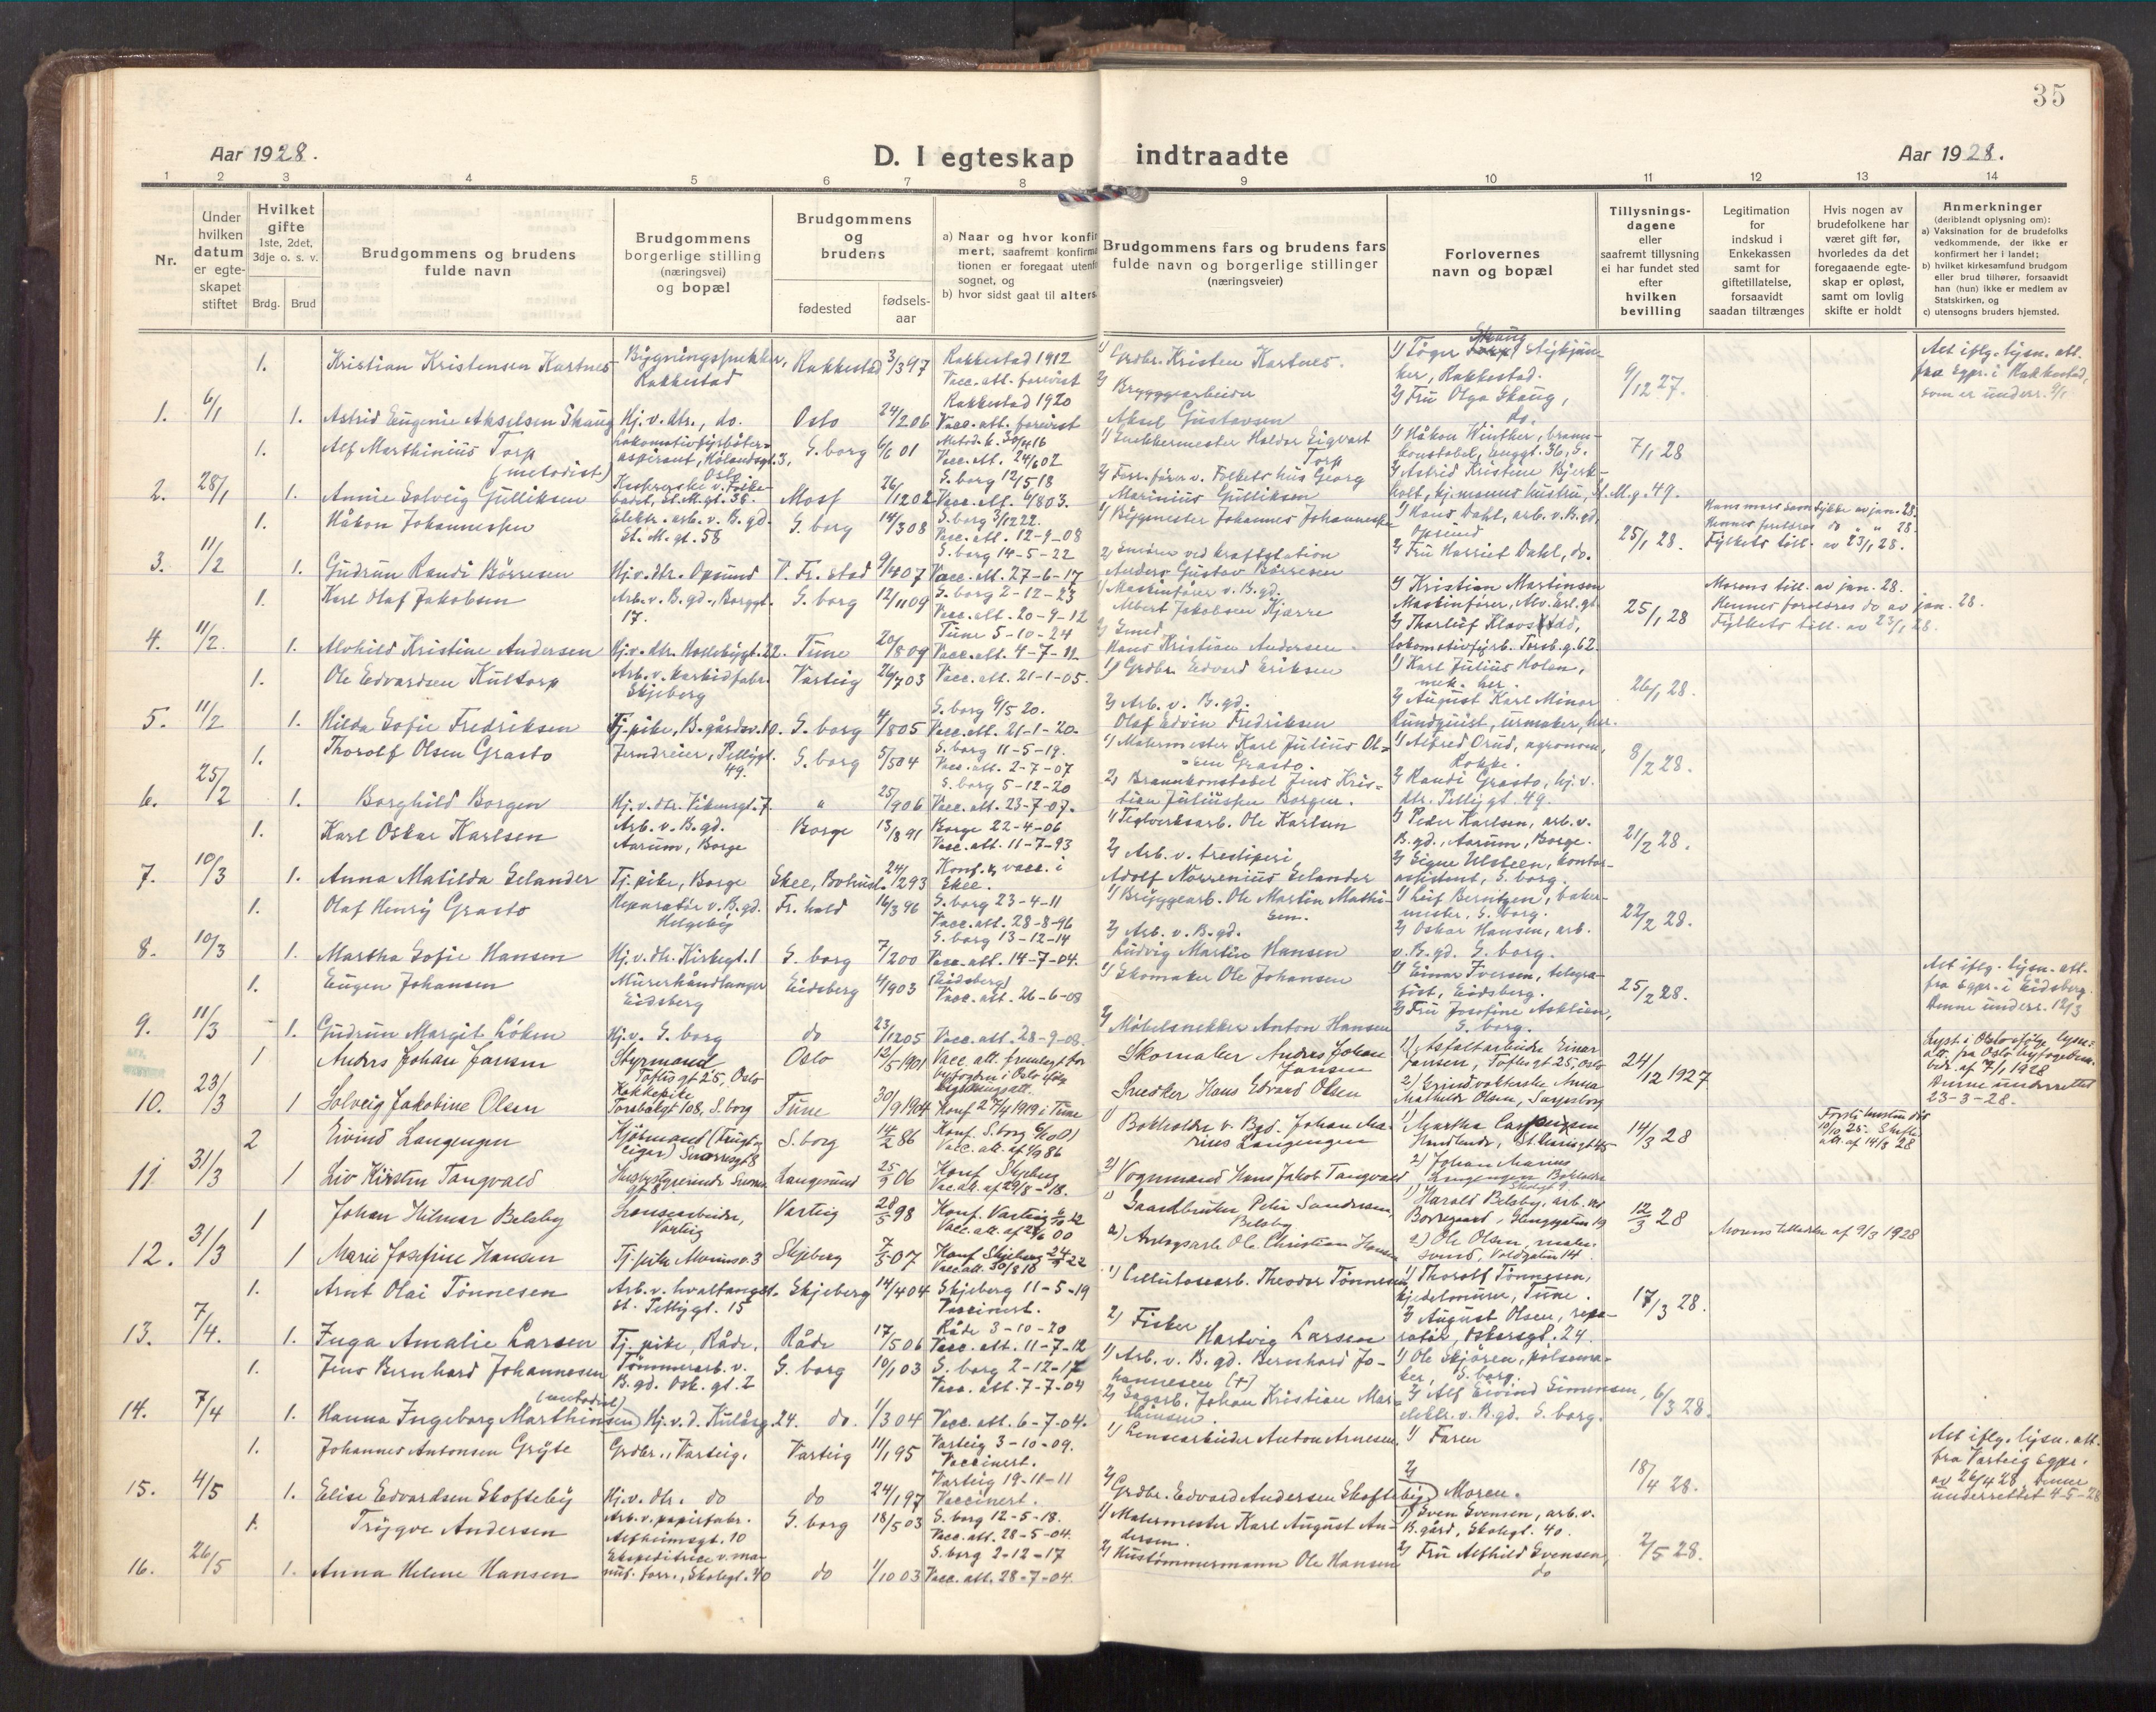 35
Aar 1928.
D. I egteskap indtraadte
Aar 1928.
1 2 3 4 5 6 7 8 9 10 11 12 13 14
Nr.
Under hvilken datum er egte- skapet stiftet
Hvilket gifte 1ste, 2det, 3dje o. s. v.
Brdg. Brud
Brudgommens og brudens fulde navn
Brudgommens borgerlige stilling (næringsvei) og bopæl
Brudgommens og brudens
fødested
fødsels- aar
a) Naar og hvor konfir mert, saafremt konfirma tionen er foregaat utenfo sognet, og
b) hvor sidst gaat til alters
Brudgommens fars og brudens fars fulde navn og borgerlige stillinger (næringsveier)
Forlovernes navn og bopæl
Tillysnings- dagene eller saafremt tillysning ei har fundet sted efter hvilken bevilling
Legitimation for indskud i Enkekassen samt for giftetillatelse, forsaavidt saadan tiltrænges
Hvis nogen av brudefolkene har været gift før, hvorledes da det foregaaende egte- skap er opløst, samt om lovlig skifte er holdt
Anmerkninger (deriblandt oplysning om):
a) Vaksination for de brudefolks vedkommende, der ikke er konfirmert her i landet;
b) hvilket kirkesamfund brudgom eller brud tilhører, forsaavidt han (hun) ikke er medlem av Statskirken, og
c) utensogns bruders hjemsted.
1. Kristian Kristensen Kartnes Bygningssnekker, Rakkestad Rakkestad 3/3 97 Rakkestad 1912 Vacc. att. forevist 1) Grdbr. Kristen Kartnes. 1) Tøger Skaug, Rakkestad. 9/12 27. Att iflg. lysn. att. fra sgpr. i Rakkestad,
1. 6/1 1. Astrid Eugenie Akselsen Skaug Hj. v. dtr., do. Oslo 24/2 06 Rakkestad 1920 Vacc. att. forevist 2) Bryggearbeider Aksel Gustavsen 2) Fru Olga Skaug, do.
1. Alf Marthinius Torp (metodist) Oslo S. borg 6/6 01 Vacc. att. 24/6 02 1) Snekkermester Haldor Sigvart Torp 1) Håkon Winther, brann- konstabel, 7/1 28
2. 28/1 1. Annie Solveig Gulliksen Moss 26/12 02 S. borg 12/5 18 Vacc. att. 6/8 03. 2) Forr. fører v. Folkets hus Georg Marinius Gulliksen 2) Astrid Kristine Bjerk- holt, St. M. g. 49.
1. Håkon Johannessen Elektr. arb. v. B. gd. St. M. gt. 58 S. borg 14/3 08 S. borg 3/12 22. Vacc. att. 12-9-08 1) Bygmester Johannes Johannessen 1) Hans Dahl, arb. v. B. gd. Opsund 25/1 28. Fylkets till. av 23/1 28.
3. 11/2 1. Gudrun Randi Børresen Hj. v. dtr. Opsund V. Fr. stad 9/6 07 S. borg 14-5-22 Vacc. att. 27-6-17 2) Smører ved kraftstation Anders Gustav Børresen 2) Fru Harriet Dahl, do.
1. Karl Olaf Jakobsen Arb. v. B. gd., Borggt. 17. S. borg 12/11 09 S. borg 2-12-23 Vacc. att. 20-9-12 1) Maskinfører v. B. gd. Albert Jakobsen Kjærre 1) Kristian Martinsen Maskinfører, 25/1 28 Morens till. av jan. 28. Hennes foreldres do av jan. 28. Fylkets till. av 23/1 28.
4. 11/2. 1. Alvhild Kristine Andersen Hj. v. dtr. Tune 20/8 09 Tune 5-10-24 Vacc. att. 4-7-11 2) Smed Hans Kristian Andersen. 2) Thorleif Klavestad, lokomotivfyrb. Torsb. g. 62.
1. Ole Edvardsen Kultorp Arb. v. karbidfabr. Skjeberg Varteig 26/7 03 Vacc. att. 21-1-05. 1) Grdbr. Edvard Eriksen 1) Karl Julius Holen, mek. her. 26/1 28.
5. 11/2 1. Hilda Sofie Fredriksen Tj. pike, B. gårdsv. 10. S. borg 4/8 05 S. borg 9/5 20. Vacc. att. 21-1-20. 2) Arb. v. B. gd. Olaf Edvin Fredriksen 2) August Karl Minor Rundquist, urmaker, her.
1. Thorolf Olsen Grasto Jerndreier, Pellygt. 49. S. borg 5/5 04 S. borg 11-5-19. Vacc. att. 2-7-07 1) Malermester Karl Julius Ol- sen Grasto. 1) Alfred Orud, agronom, Rokke. 8/2 28.
6. 25/2 1. Borghild Borgen Hj. v. dtr. Vikensgt. 7. " 25/9 06 S. borg 5-12-20 Vacc. att. 23-7-07. 2) Brannkonstabel Jens Kris- tian Juliussen Borgen. 2) Randi Grasto, hj. v. dtr. Pellygt. 49.
1. Karl Oskar Karlsen Arb. v. B. gd. Aarum, Borge Borge 13/8 91 Borge 22-4-06 Vacc. att. 11-7-93 1) Teglverksarb. Ole Karlsen 1) Peder Karlsen, arb. v. B. gd., Aarum, Borge. 21/2 28.
7. 10/3 1. Anna Matilda Selander Tj. pike, Borge Skee, Bohusl. 24/12 93 Konf. & vacc. i Skee. 2) Arb. v. tresliperi Adolf Norrenius Selander 2) Signe Ulsteen, kontor- assistent, S. borg.
1. Olaf Henry Grasto Reparatør v. B. gd. Helgeby Fr. hald 16/3 96 S. borg 23-4-11 Vacc. att. 28-8-96 1) Bryggearb. Ole Martin Mathi- sen. 1) Leif Berntzen, baker- mester, S. borg. 22/2 28.
8. 10/3 1. Martha Sofie Hansen Hj. v. dtr. Kirkegt. 1 S. borg 7/2 00 S. borg 13-12-14 Vacc. att. 14-7-04. 2) Arb. v. B. gd. Ludvig Martin Hansen 2) Oskar Hansen, arb. v. B. gd. S. borg.
1. Eugen Johansen Murerhåndlanger Eidsberg Eidsberg 4/9 03 (Eidsberg) Vacc. att. 26-6-08 1) Skomaker Ole Johansen 1) Einar Iversen, telegra- fist, Eidsberg. 25/2 28. Att iflg. lysn. att. fra sgpr. i Eidsberg. Denne underr. 12/3
9. 11/3 1. Gudrun Margit Løken Hj. v. S. borg do 23/12 05 Vacc. att. 28-9-08. 2) Møbelsnekker Anton Hansen 2) Fru Josefine Asklien, S. borg.
1 Andres Johan Jansen Styrmand Toftesgt 25, Oslo Oslo 12/5 1901 Vacc. att. fremlagt for byfogden i Oslo Skomaker Andres Johan Jansen 1) Asfaltarbeider Einar Jansen, Toftesgt 25, Oslo 24/12 1927
10. 23/3 1 Solveig Jakobine Olsen Kokkepike Torsbekgt 108, S. borg Tune 30/9 1904 Konf 27/4 1919 i Tune Snedker Hans Edvard Olsen 2) Mathilde Olsen, Sarpsborg Denne underrettet 23-3-28.
2 Eivind Langengen Kjøbmand S. borg 14/2 86 1) Bokholder v. Bgd. Johan Ma- rius Langengen 14/3 28
11 31/3 1 Liv Kirsten Tangvald Langesund 25/5 06 Konf Skjeberg Vac. att. af 29/8-18. 2) Vognmand Hans Jakob Tangvald 2) Johan Marius Langengen Bokholder
1 Johan Hilmar Belsby Lensearbeider, Varteig Varteig 28/5 98 1) Gaardbruker Peter Sandersen Belsby 1) Harald Belsby, arb. ved Borregaard, Glenggaten 19 12/3 28 Morens tilladelse af 9/3 1928
12. 31/3 1 Marie Josefine Hansen Skjeberg 7/5-07 2) Anlegsarb. Ole Christian Hansen 2) Ole Olsen, maler- svend, Voldgaten 14.
1. Arnt Olai Tønnesen Arb. v. hvalfangst. St. Pellygt. 15 Skjeberg 14/4 04 Skjeberg 11-5-19 Vaccinert. 1) Cellulosearb. Theodor Tønnesen 1) Thorolf Tønnesen, kjedelmurer, Tune. 17/3 28.
13. 7/4. 1. Inga Amalie Larsen Tj. pike, Råde. Råde 17/5 06 Råde 3-10-20 Vacc. att. 11-7-12 2) Fisker Hartvig Larsen 2) August Olsen, repa- ratør, Oskarsgt. 24.
1. Jens Bernhard Johannesen Tømmerarb. v. B. gd. Osk. gt. 2 S. borg 10/1 03 S. borg 2-12-17 Vacc. att. 7-7-04 1) Arb. v. B. gd. Bernhard Jo- hannesen (+) 1) Ole Skjøren, pølsema- ker, S. borg. 6/3 28.
14. 7/4 1. Hanna Ingeborg Marthinsen (metodist) Hj. v. d. Kulåsg. 24. do. 1/3 04 Vacc. att. 6-7-04. 2) Sagarb. Johan Kristian Mar- thinsen. 2) Alf Eivind Simensen, elektr. v. B. gd. S. borg.
1. Johannes Antonsen Gryte Grdbr., Varteig. Varteig 11/1 95 Varteig 3-10-09. Vaccinert. 1) Lensearbeider Anton Arnesen. 1) Faren 18/4 28. Att iflg. lysn. att. fra Varteig sgpr. av 26/4 28, denne underrettet 4-5-28
15. 4/5 1. Elise Edvardsen Skofteby Hj. v. dtr. do do 24/1 97 Varteig 19-11-11 Vaccinert. 2) Grdbr. Edvard Andersen Skofteby 2) Moren.
1. Trygve Andersen Arb. v. papirfabr. Alfheimsgt. 10 S. borg 18/5 03 S. borg 12-5-18. Vacc. att. 28-5-04. 1) Malermester Karl August An- dersen. 1) Sven Svensen, arb. v. B. gård, Skolegt. 40. 2/5 28.
16. 26/5 1. Anna Helene Hansen Ekspeditrice v. ma- nuf. forr., Skolegt. 40 do 1/10 03 S. borg 2-12-17 Vacc. att. 28-7-04. 2) Hustømmermann Ole Hansen 2) Fru Alfhild Svensen, do